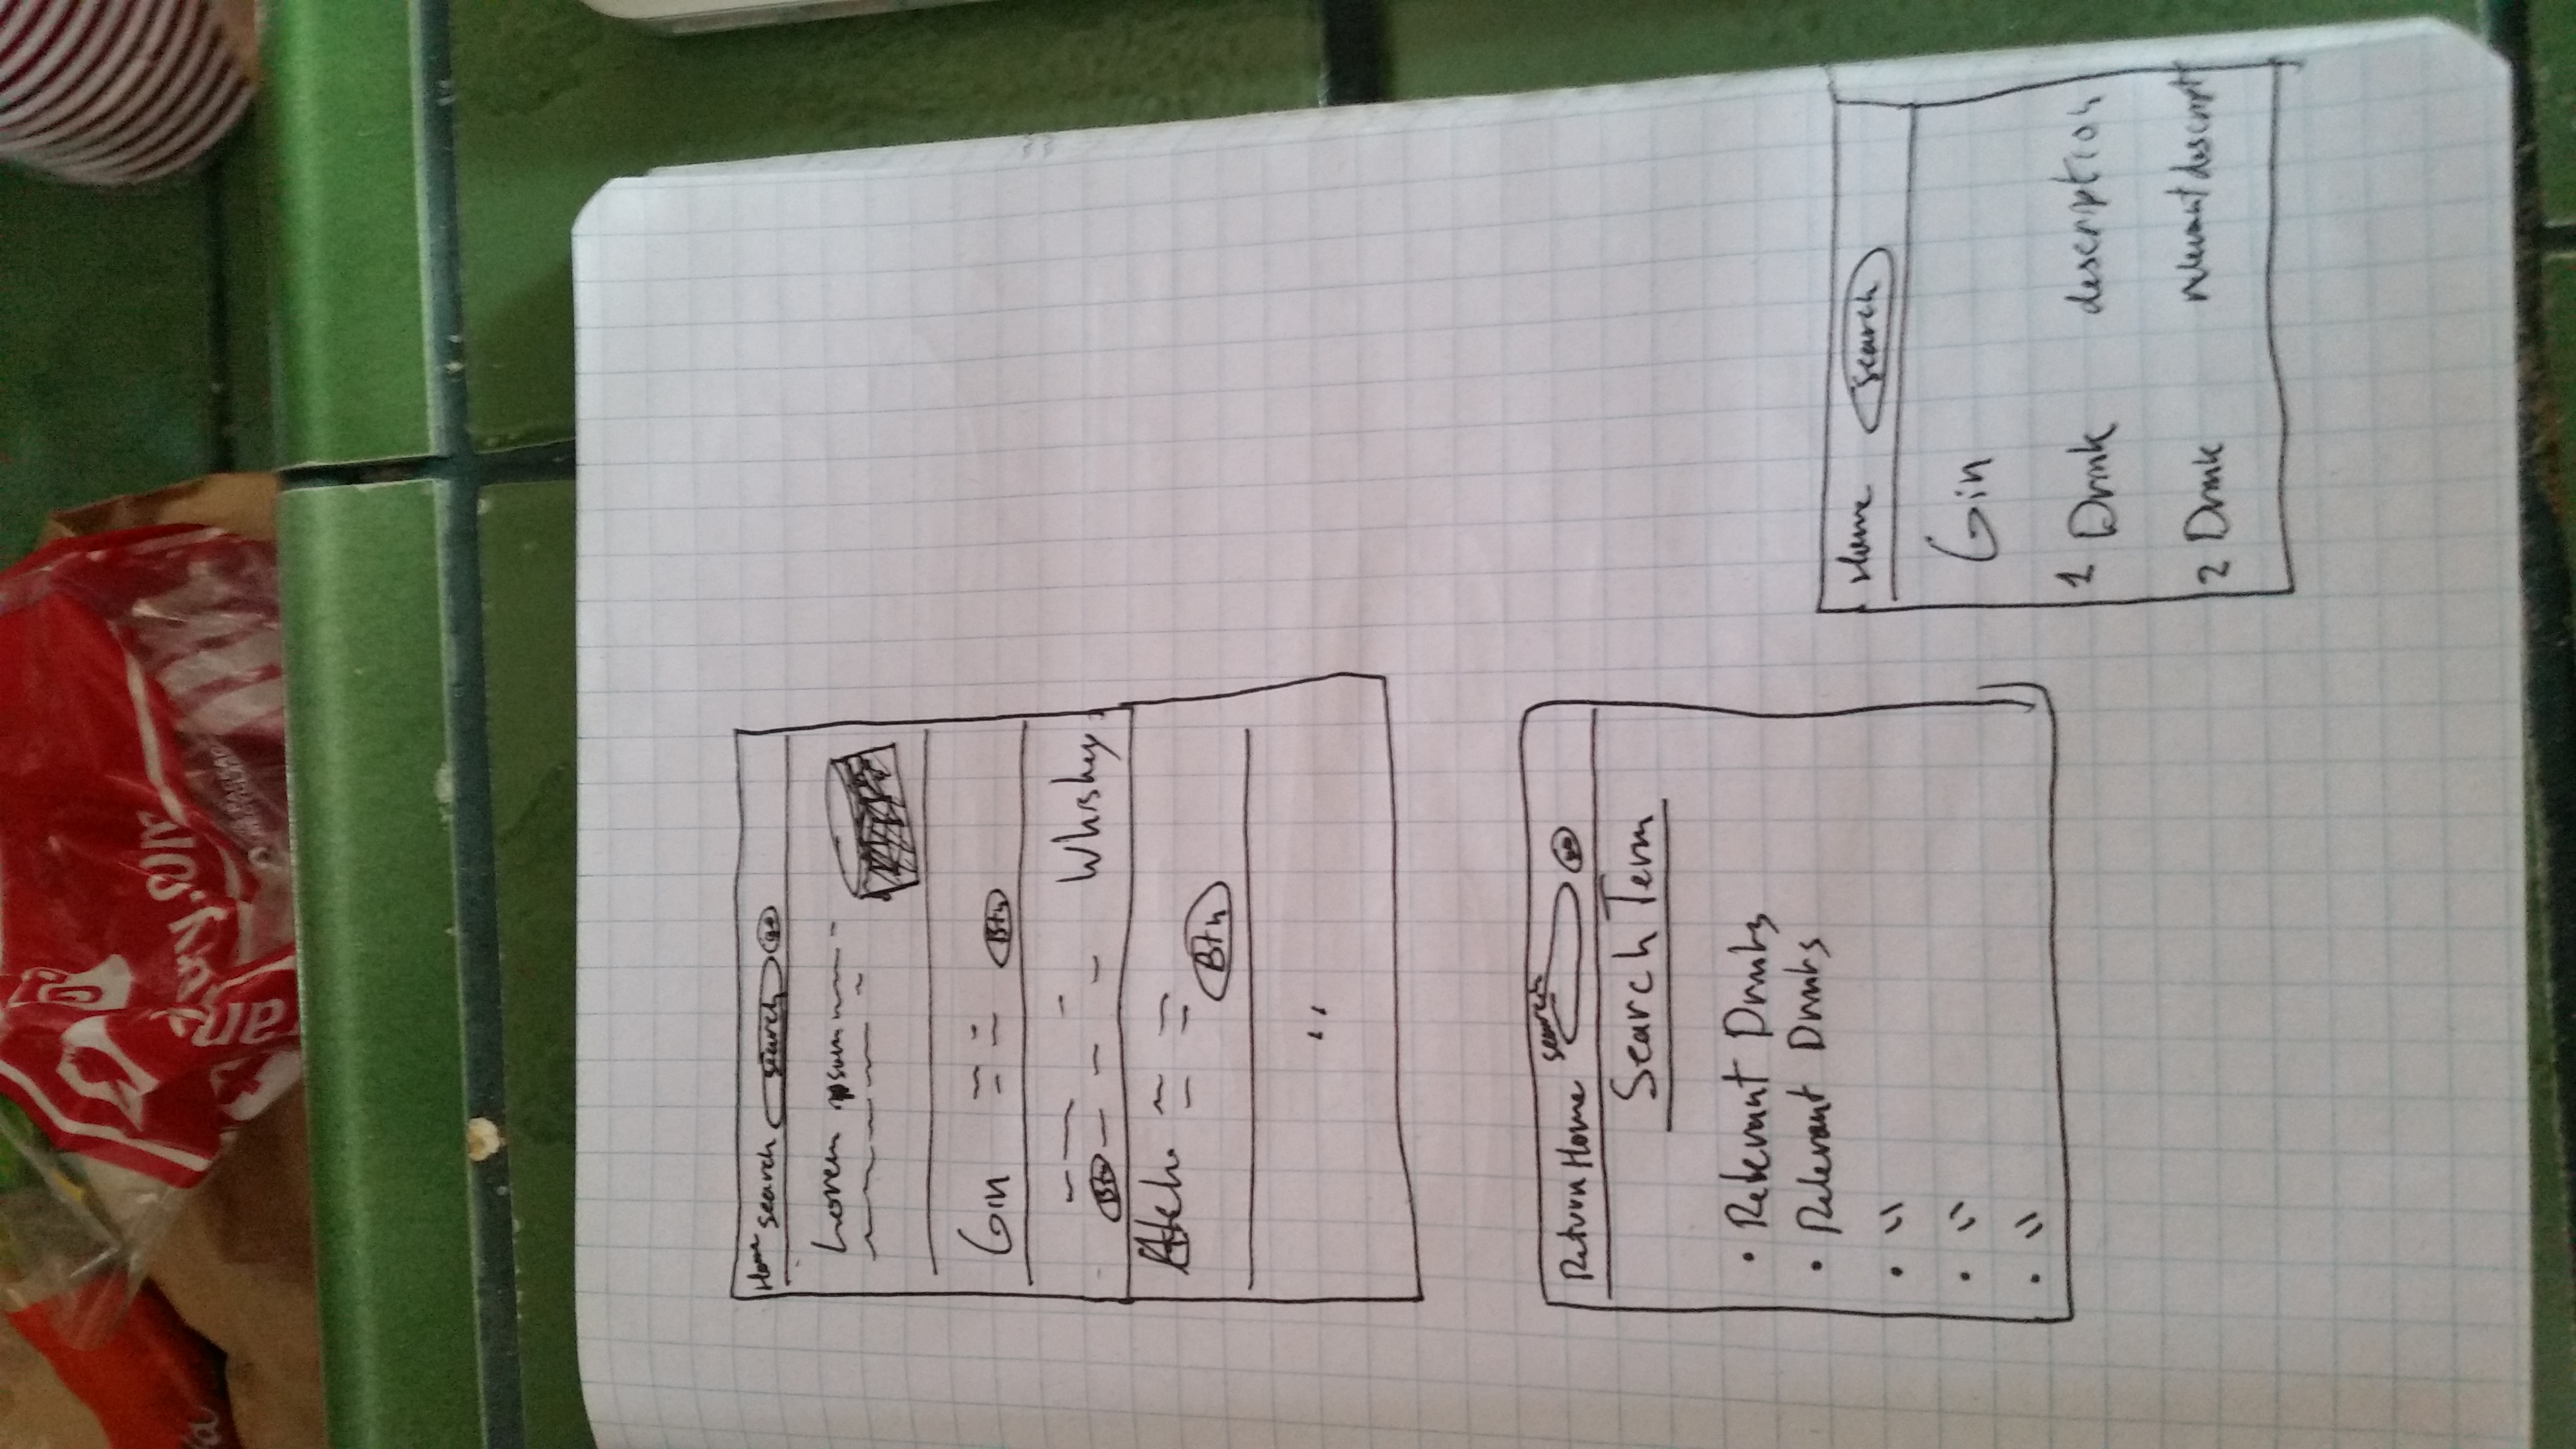 Home search search go
Lorem ipsum
Gin Btn
Btn Whiskey
Btn
Return Home search go
Search Term
• Relevant Drinks
• Relevant Drinks
• "
• "
• "
Home search
Gin
1 Drink description
2 Drink relevant descript